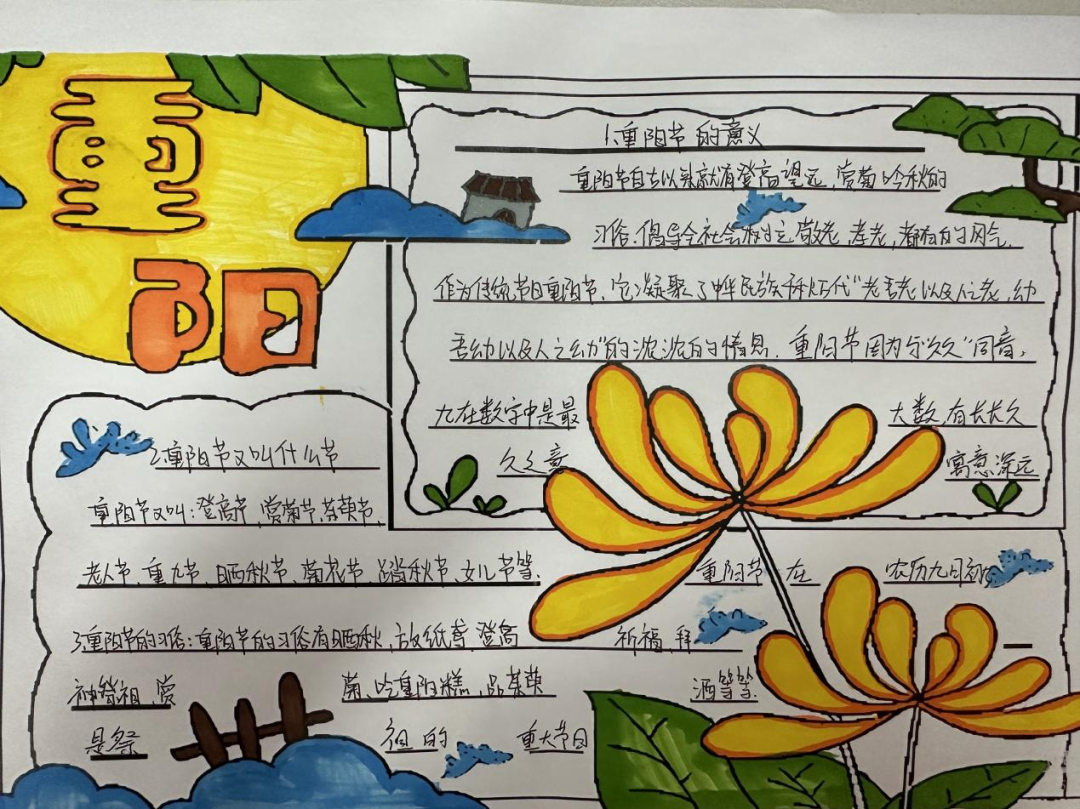 重
阳
1.重阳节的意义
重阳节自古以来就有登高望远,赏菊吟秋的
习俗.倡导全社会树立敬老,孝老,都有的风气,
作为传统节日重阳节,它凝聚了中华民族千秋万代"老吾老以及人之老,幼
吾幼以及人之幼"的浓浓的情意.重阳节因为与"久久"同音,
九在数字中是最 大数,有长长久
久之意 寓意深远
2.重阳节又叫什么节
重阳节又叫:登高节,赏菊节,茱萸节,
老人节,重九节,晒秋节,菊花节 踏秋节,女儿节等.
重阳节 在 农历九月初
3.重阳节的习俗:重阳节的习俗有晒秋,放纸鸢,登高
祈福,拜
神祭祖,赏 菊,吃重阳糕,品茱萸 酒等等.
是祭 祖的 重大节日